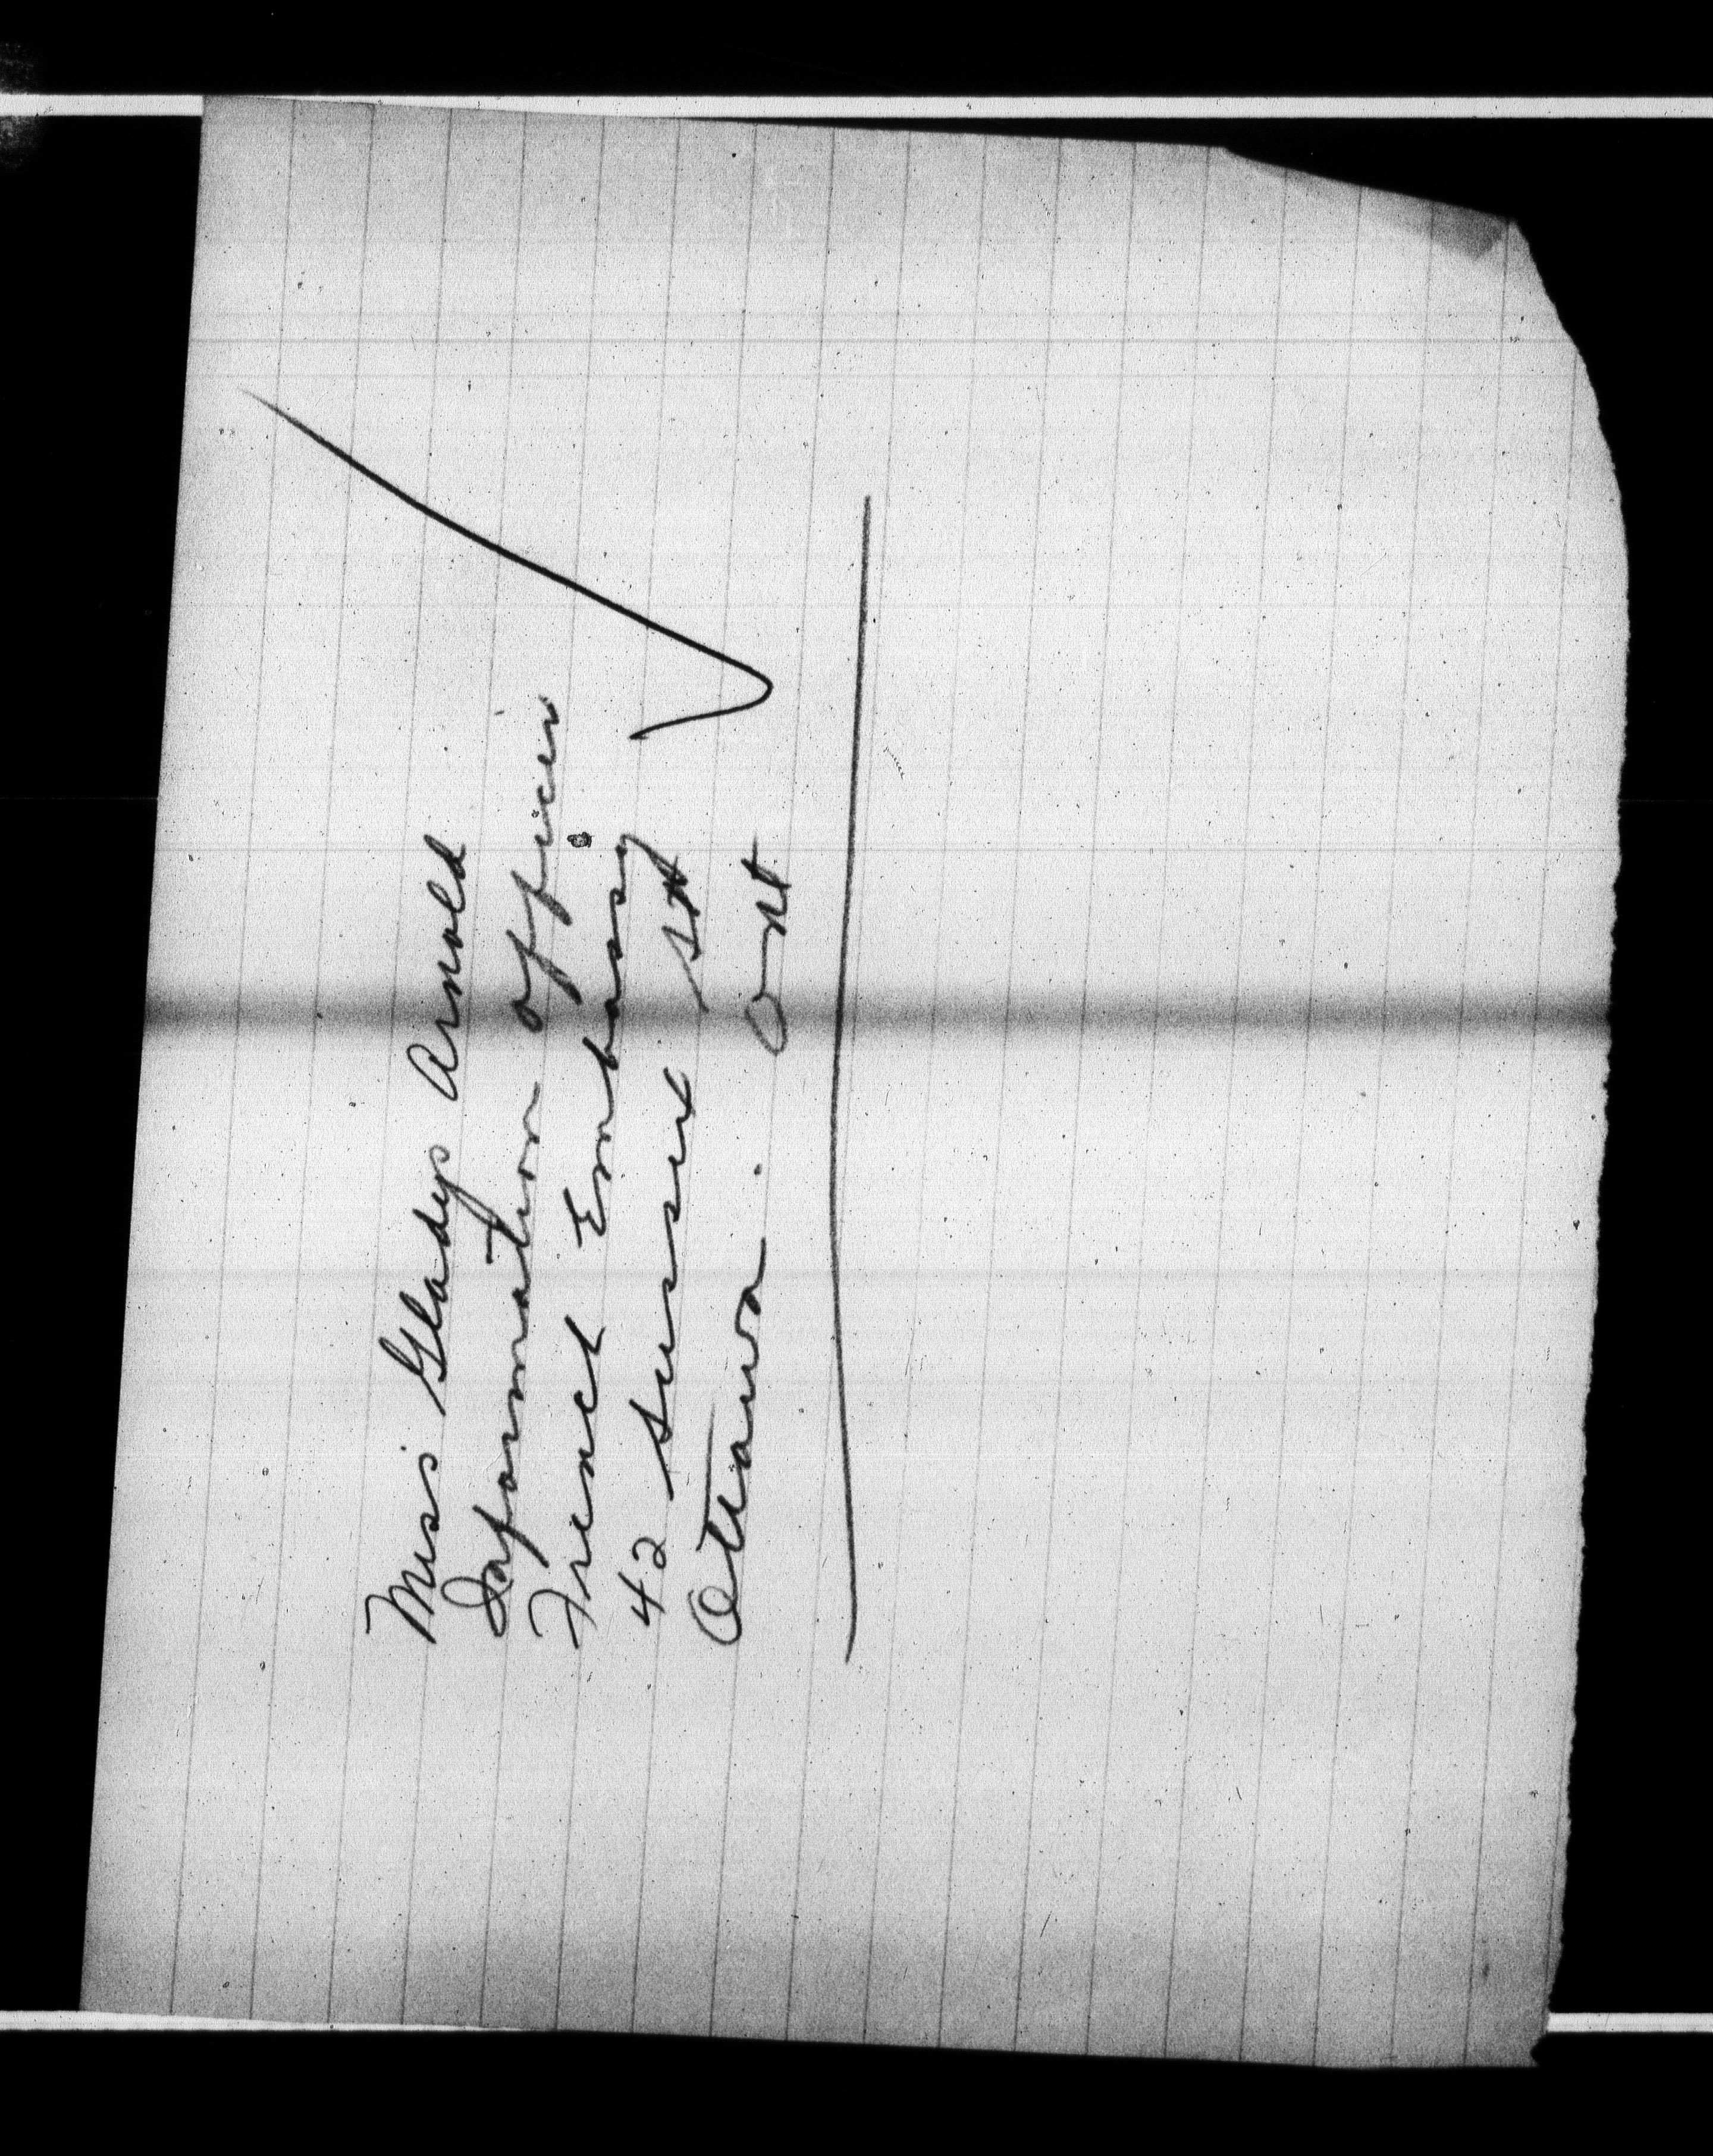 Miss Gladys Arnold
Information Officer
French Embassy
42 Sussex St
Ottawa. Ont